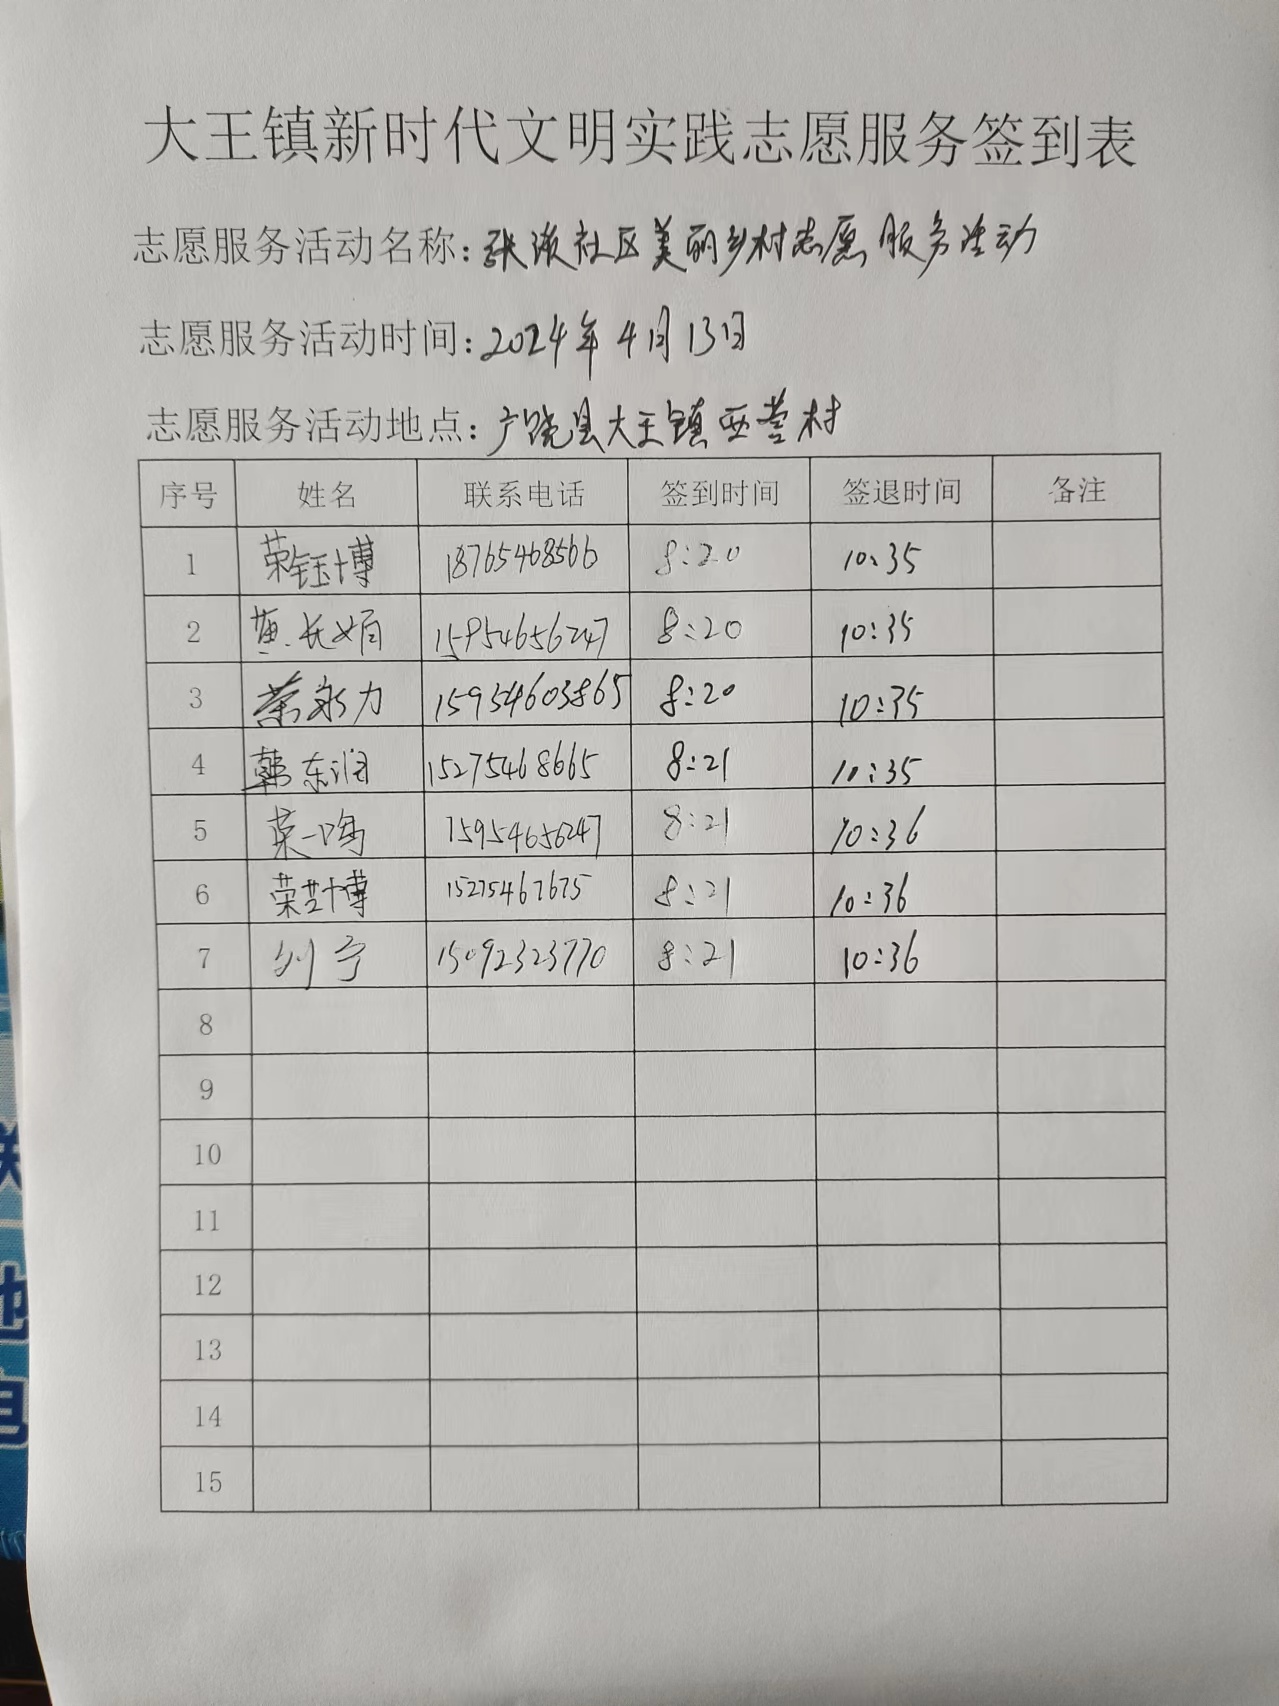 大王镇新时代文明实践志愿服务签到表
志愿服务活动名称：张淡社区美丽乡村志愿服务活动
志愿服务活动时间：2024年4月13日
志愿服务活动地点：广饶县大王镇西营村
序号 姓名 联系电话 签到时间 签退时间 备注
1 荣钰博 18765468566 8:20 10:35
2 黄长娟 15954656247 8:20 10:35
3 荣新力 15954603865 8:20 10:35
4 韩东润 15275468665 8:21 10:35
5 荣一鸣 15954656247 8:21 10:36
6 荣芸博 15275467675 8:21 10:36
7 刘宁 15092323770 8:21 10:36
8
9
10
11
12
13
14
15
联
地
电